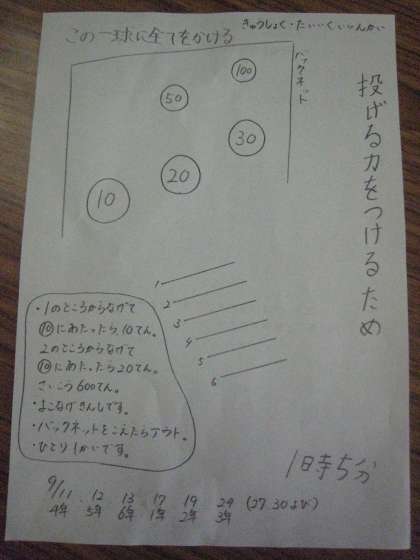 きゅうしょく・たいいくいいんかい
この一球に全てをかける
バックネット
投げる力をつけるため
100
50
30
20
10
1
2
3
4
5
6
・1のところからなげて
⑩にあたったら10てん。
2のところからなげて
⑩にあたったら20てん。
さいこう600てん。
・よこなげきんしです。
・バックネットをこえたらアウト。
・ひとり1かいです。
1時5分
9/11 12 13 17 19 24 (27.30よび)
4年 5年 6年 1年 2年 3年